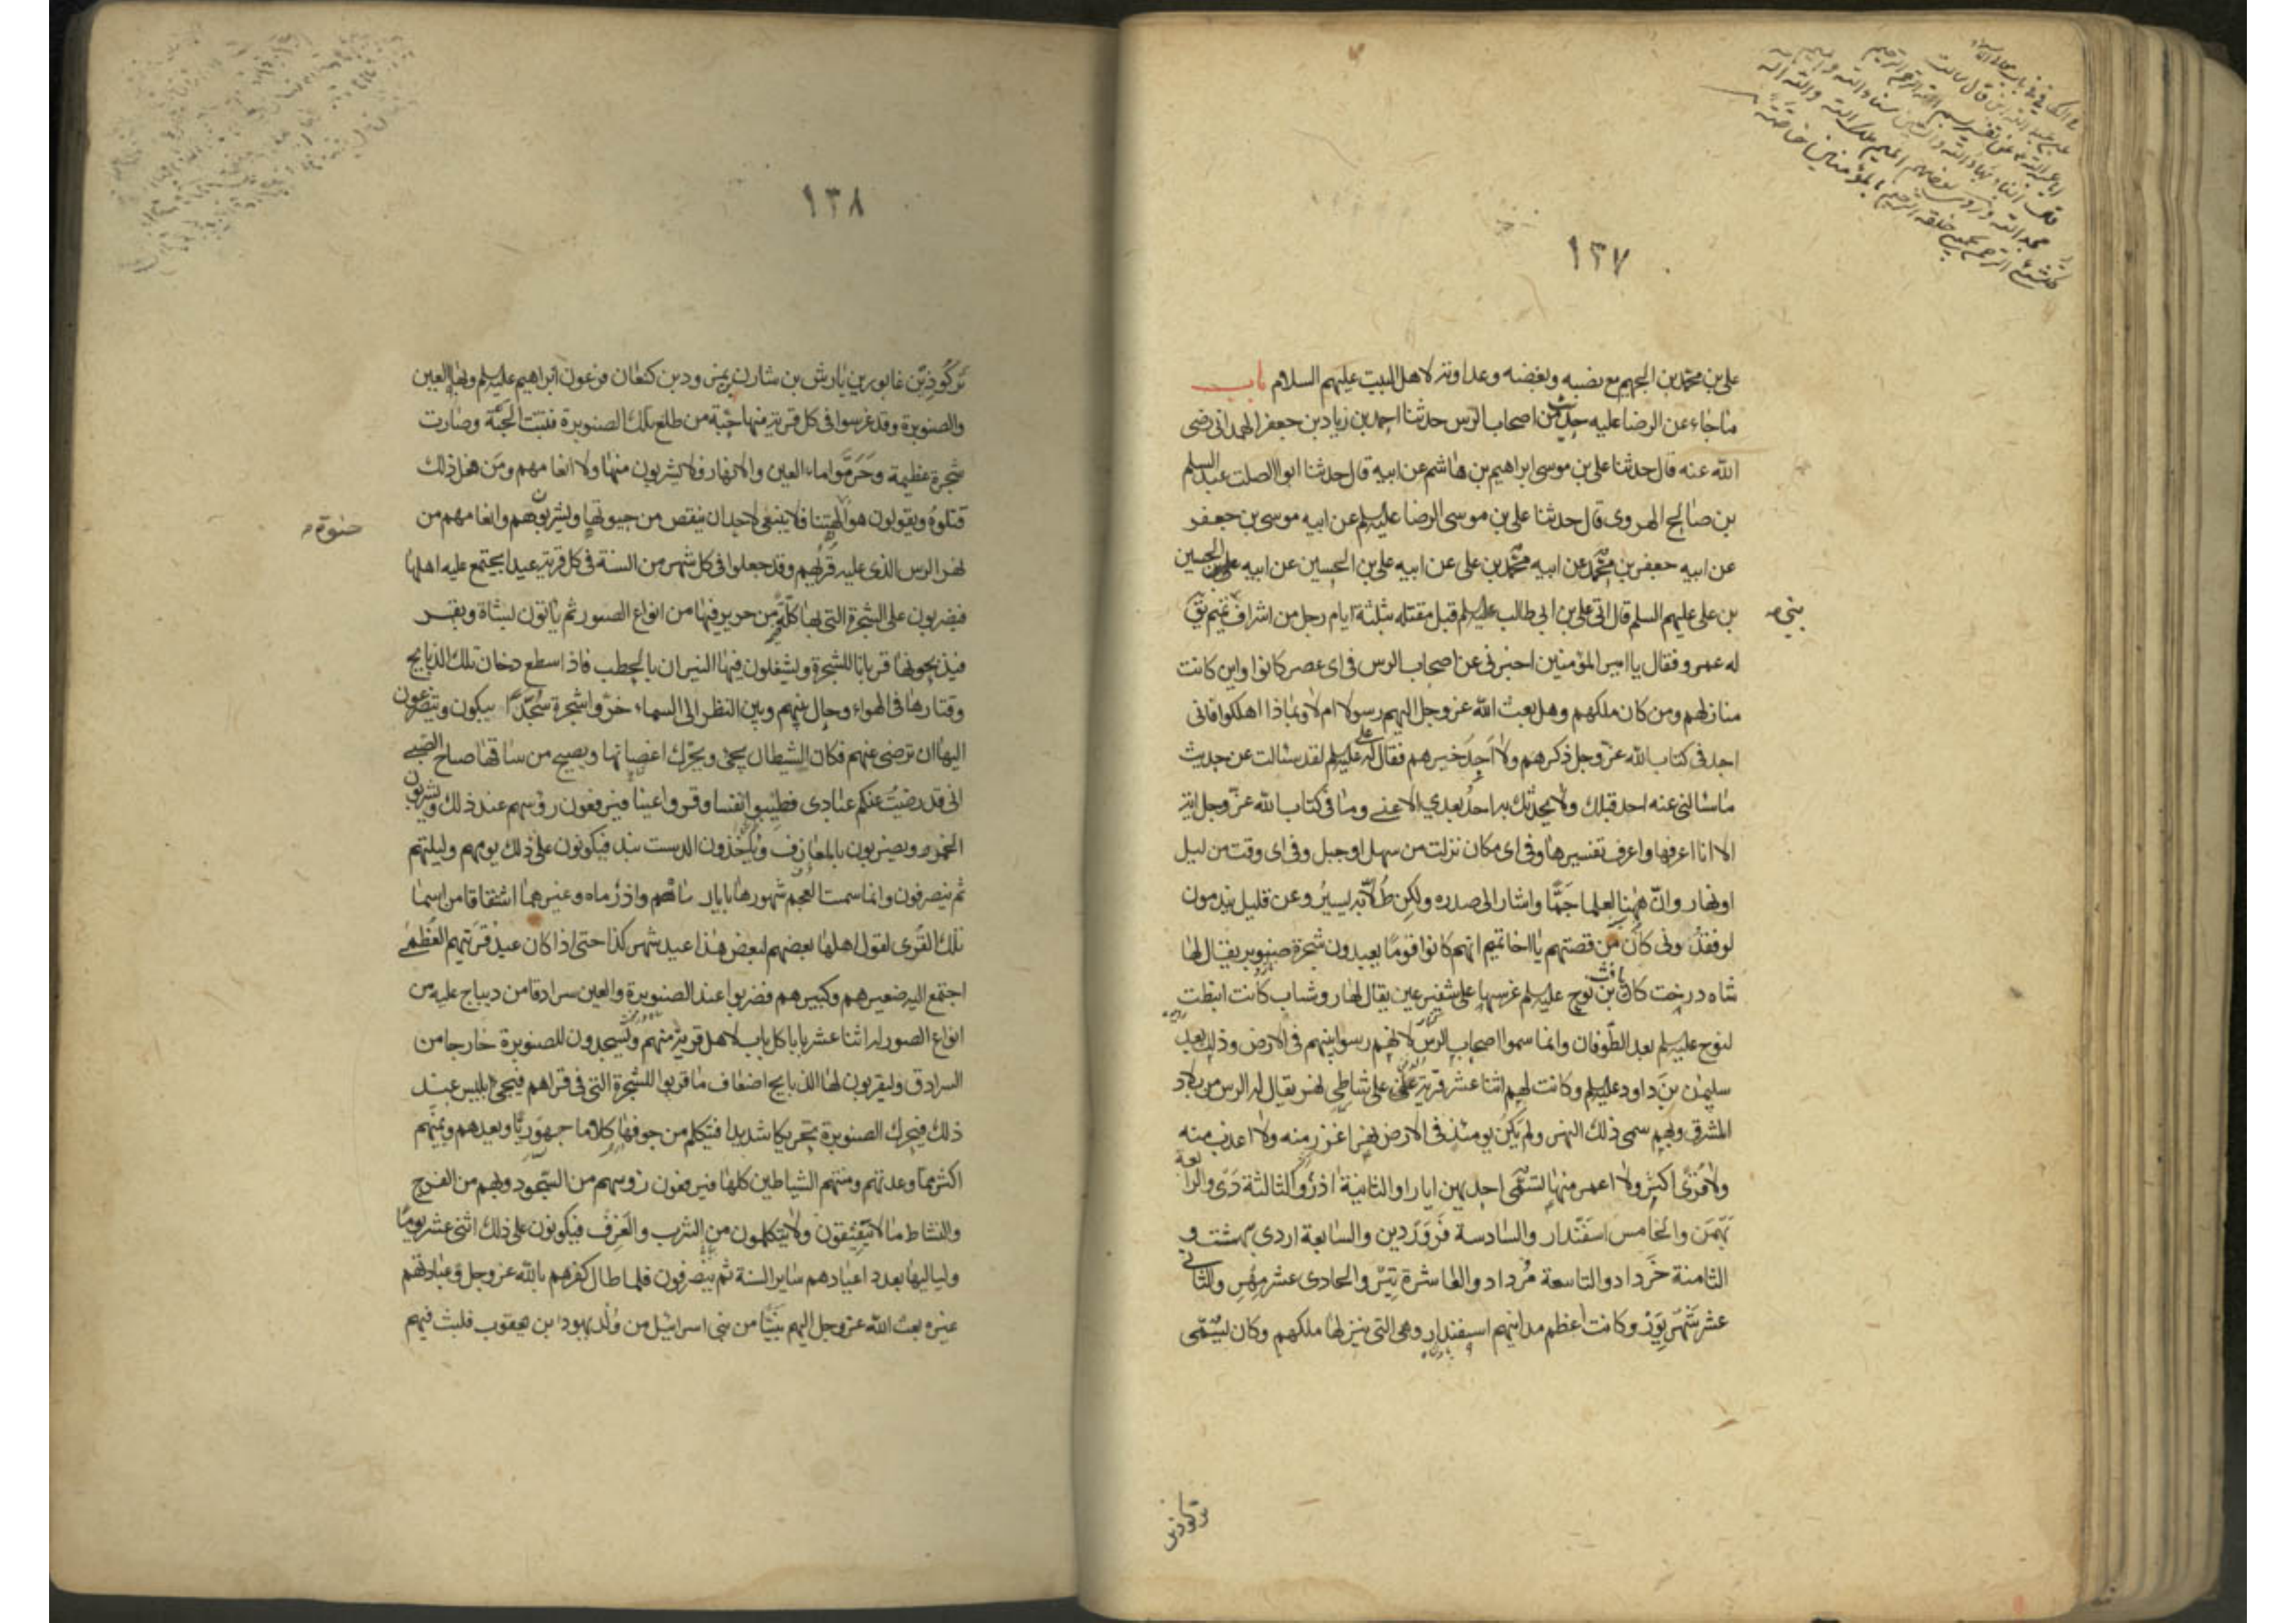 ١٣٧
على بن محمد بن الجهم مع نصبه وبغضه وعداوته لاهل البيت عليهم السلام باب
ماجاء عن الرضا عليه حديث من اصحاب الرس حدثنا احمد بن زياد بن جعفر الهمدانى رضى
الله عنه قال حدثنا على بن موسى ابراهيم بن هاشم عن ابيه قال حدثنا ابو الصلت عبد السلم
بن صالح الهروى قال حدثنا على بن موسى الرضا عليه السلم عن ابيه موسى بن جعفر
عن ابيه جعفر بن محمد عن ابيه محمد بن على عن ابيه على بن الحسين عن ابيه الحسين
بن على عليهم السلم قال اتى على بن ابى طالب عليه السلم قبل مقتله بثلثة ايام رجل من اشراف تميم يق
بنى
له عمرو فقال يا امير المؤمنين اخبرنى عن اصحاب الرس فى اى عصر كانوا واين كانت
منازلهم ومن كان ملكهم وهل بعث الله عز وجل اليهم رسولا ام لا وبماذا اهلكوا فانى
اجد فى كتاب الله عز وجل ذكرهم ولا اجد خبرهم فقال له على عليه السلم لقد سئالت عن حديث
ماسالنى عنه احد قبلك ولا يحدثك به احد بعدي الا عنى وما فى كتاب الله عز وجل اية
الا انا اعرفها واعرف تفسيرها وفى اى مكان نزلت من سهل او جبل وفى اى وقت من ليل
او نهار وان ههنا لعلما جما واشار الى صدره ولكن طلابه يسير وعن قليل يندمون
لو فقدونى كان من قصتهم يا اخا تميم انهم كانوا قوما يعبدون شجرة صنوبر يقال لها
شاه درخت كان يافث بن نوح عليه السلم غرسها على شفير عين يقال لها روشاب كانت انبطت
لنوح عليه السلم بعد الطوفان وانما سموا اصحاب الرس لانهم رسوا نبيهم فى الارض وذلك بعد
سليمن بن داود عليه السلم وكانت لهم اثنا عشر قرية على شاطى نهر يقال له الرس من بلاد
المشرق وبهم سمى ذلك النهر ولم يكن يومئذ فى الارض نهر اغزر منه ولا اعذب منه
ولا قرى اكثر ولا اعمر منها تسمى احديهن ابان والثانية اذر والثالثة دى والرابعة
بهمن والخامس اسفندار والسادسة فروردين والسابعة اردى بهشت و
الثامنة خرداد والتاسعة مرداد والعاشرة تير والحادى عشر مهر والثانى
عشر شهريور وكانت اعظم مدائنهم اسفندار وهى التى ينزلها ملكهم وكان يسمى
تركوذبن
١٣٨
تركوذبن غابور بن يارش بن شارن بن نمرود بن كنعان فرعون ابراهيم عليه السلم وبها العين
والصنوبرة وقد غرسوا فى كل قرية منها حبة من طلع تلك الصنوبرة فنبتت الحبة وصارت
شجرة عظيمة وحرموا ماء العين والانهار فلا يشربون منها ولا انعامهم ومن فعل ذلك
قتلوه ويقولون هو الهتنا فلا ينبغى لاحد ان ينقص من حيوتها ويشربون هم وانعامهم من
حيوة
نهر الرس الذى عليه قريهم وقد جعلوا فى كل شهر من السنة فى كل قرية عيدا يجتمع عليه اهلها
فيضربون على الشجرة التى بها كلة من حرير فيها من انواع الصور ثم ياتون بشاة وبقر
فيذبحونها قربانا للشجرة ويشعلون فيها النيران بالحطب فاذا سطع دخان تلك الذبايح
وقتارها فى الهواء وحال بينهم وبين النظر الى السماء خروا شجرة سجدا يبكون ويتضرعون
اليها ان ترضى عنهم فكان الشيطان يجئ ويحرك اغصانها ويصيح من ساقها صياح الصبى
انى قد رضيت عنكم عبادى فطيبوا نفسا وقروا عينا فيرفعون رؤسهم عند ذلك ويشربون
الخمر ويضربون بالمعازف وياخذون الدست بند فيكونون على ذلك يومهم وليلتهم
ثم ينصرفون وانما سمت العجم شهورها بابان ماه واذر ماه وغيرهما اشتقاقا من اسما
تلك القرى لقول اهلها بعضهم لبعض هذا عيد شهر كذا حتى اذا كان عيد قريتهم العظمى
اجتمع اليه صغيرهم وكبيرهم فضربوا عند الصنوبرة والعين سرادقا من ديباج عليه من
انواع الصور له اثنا عشر بابا كل باب لاهل قرية منهم ويسجدون للصنوبرة خارجا من
السرادق ويقربون لها الذبايح اضعاف ما قربوا للشجرة التى فى قراهم فيجئ ابليس عند
ذلك فيحرك الصنوبرة تحريكا شديدا فيتكلم من جوفها كلاما جهوريا ويعدهم ويمنيهم
اكثر مما وعدتهم ومنتهم الشياطين كلها فيرفعون رؤسهم من السجود وبهم من الفرح
والنشاط ما لا يفيقون ولا يتكلمون من الشرب والعزف فيكونون على ذلك اثنى عشر يوما
ولياليها بعدد اعيادهم ساير السنة ثم ينصرفون فلما طال كفرهم بالله عز وجل وعبادتهم
غيره بعث الله عز وجل اليهم نبيا من بنى اسرائيل من ولد يهودا بن يعقوب فلبث فيهم